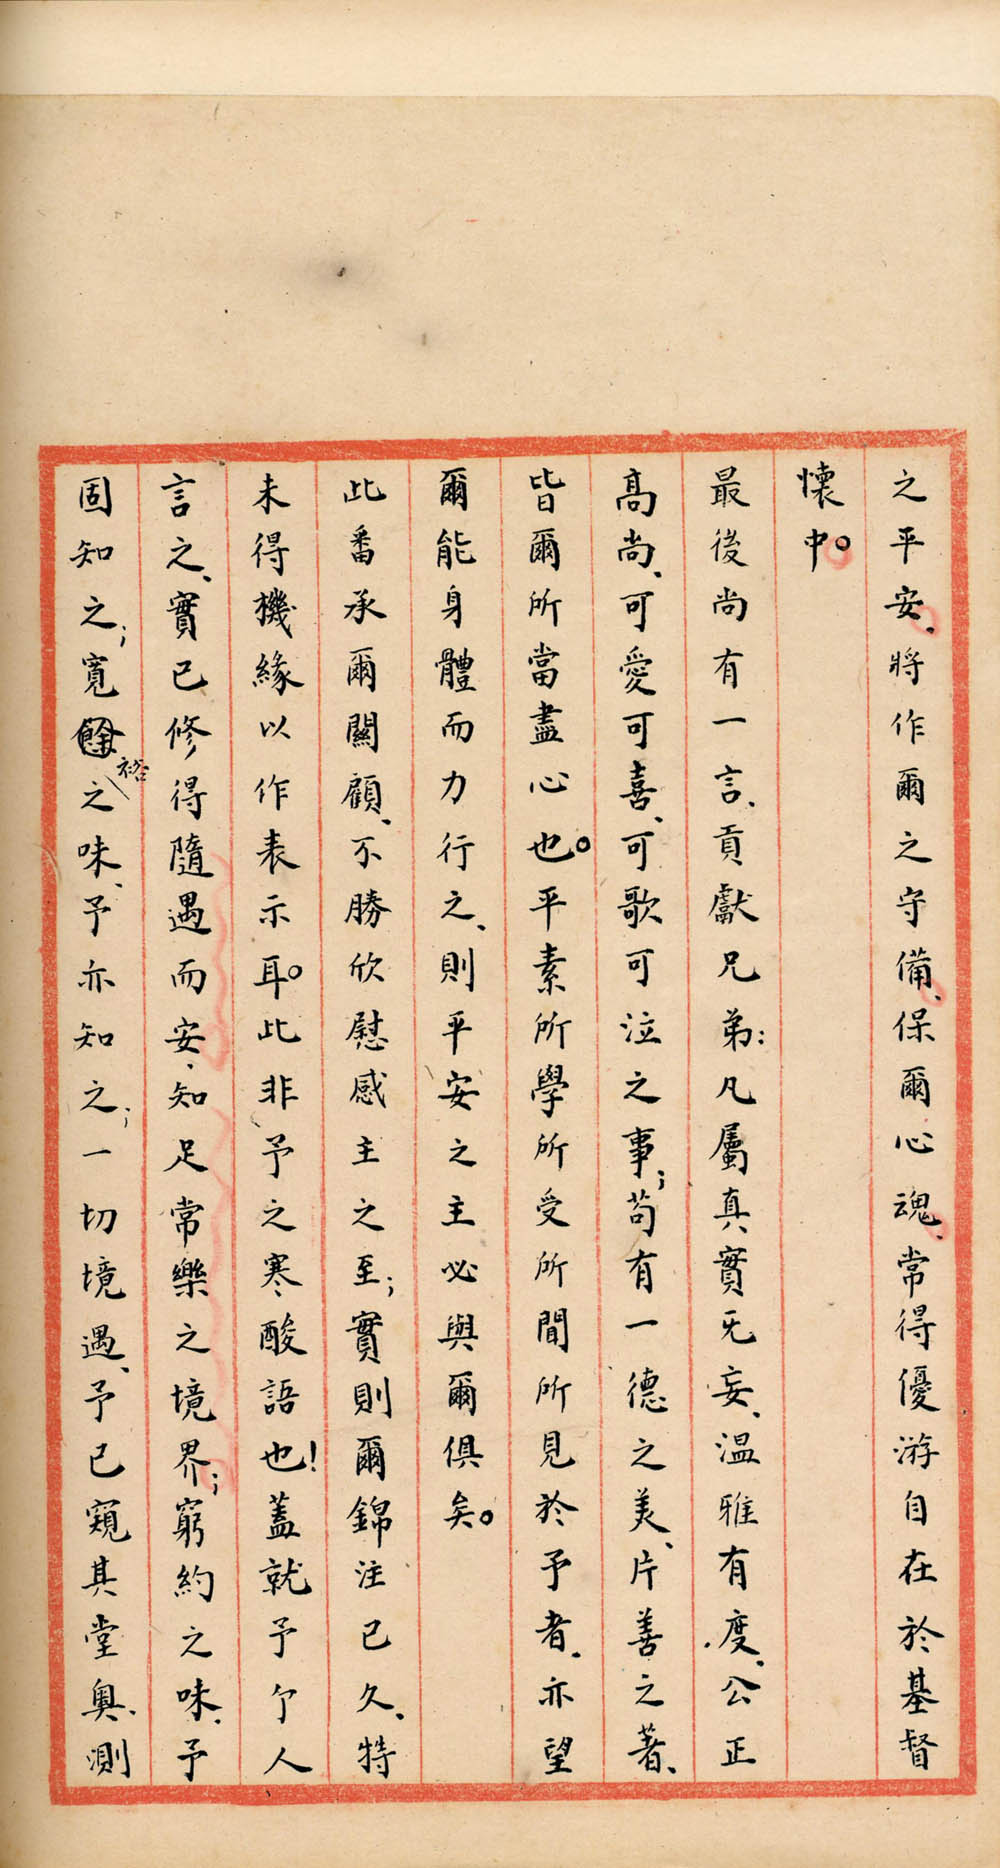 之平安、將作爾之守備、保爾心魂、常得優游自在於基督
懷中。
最後尚有一言、貢獻兄弟：凡屬真實无妄、温雅有度、公正
高尚、可愛可喜、可歌可泣之事；苟有一德之美、片善之著、
皆爾所當盡心也。平素所學所受所聞所見於予者、亦望
爾能身體而力行之、則平安之主必與爾俱矣。
此番承爾關顧、不勝欣慰感主之至；實則爾錦注已久、特
未得機緣以作表示耳。此非予之寒酸語也！蓋就予个人
言之、實已修得隨遇而安、知足常樂之境界；窮約之味、予
固知之；寬裕之味、予亦知之；一切境遇、予已窺其堂奧、測